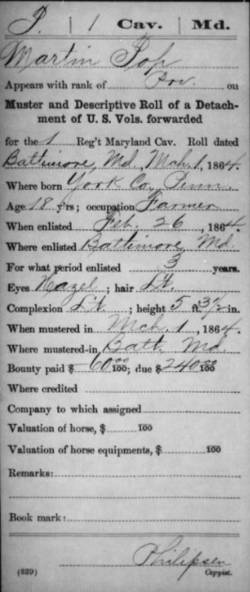 P. | 1 | Cav. | Md.
Martin Pop
Appears with rank of Prv. on
Muster and Descriptive Roll of a Detach-
ment of U. S. Vols. forwarded
for the 1 Reg't Maryland Cav. Roll dated
Baltimore, Md., Mch. 1, 1864.
Where born York Co., Penn.
Age 18 y'rs; occupation Farmer
When enlisted Feb. 26, 1864.
Where enlisted Baltimore, Md.
For what period enlisted 3 years.
Eyes Hazel; hair Lt.
Complexion Lt.; height 5 ft. 3½ in.
When mustered in Mch. 1, 1864.
Where mustered-in Balt. Md.
Bounty paid $ 60 00/100; due $ 240 00/100
Where credited
Company to which assigned
Valuation of horse, $ 100
Valuation of horse equipments, $ 100
Remarks:
Book mark:
Philipsen
(339) Copyist.